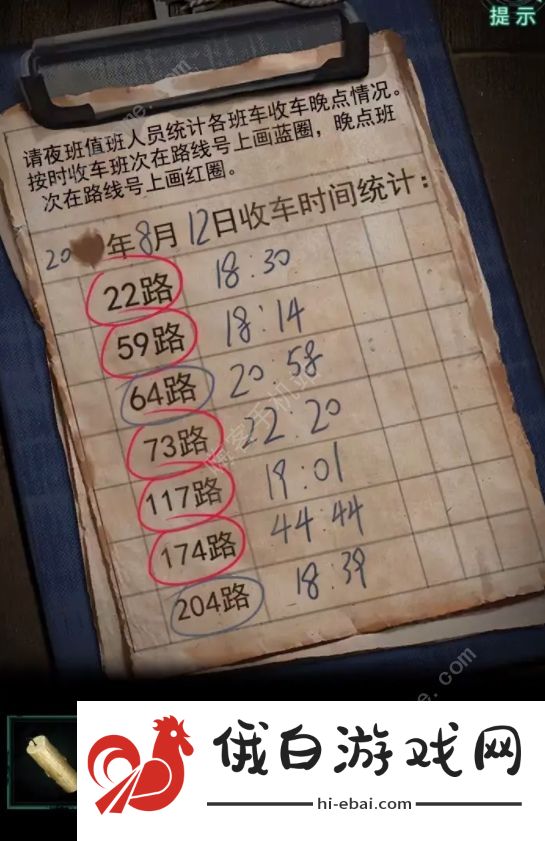 提示
请夜班值班人员统计各班车收车晚点情况。
按时收车班次在路线号上画蓝圈，晚点班
次在路线号上画红圈。
20 年8月12日收车时间统计：
22路 18:30
59路 18:14
64路 20:58
73路 22:20
117路 19:01
174路 44:44
204路 18:39
俄白游戏网
hi-ebai.com